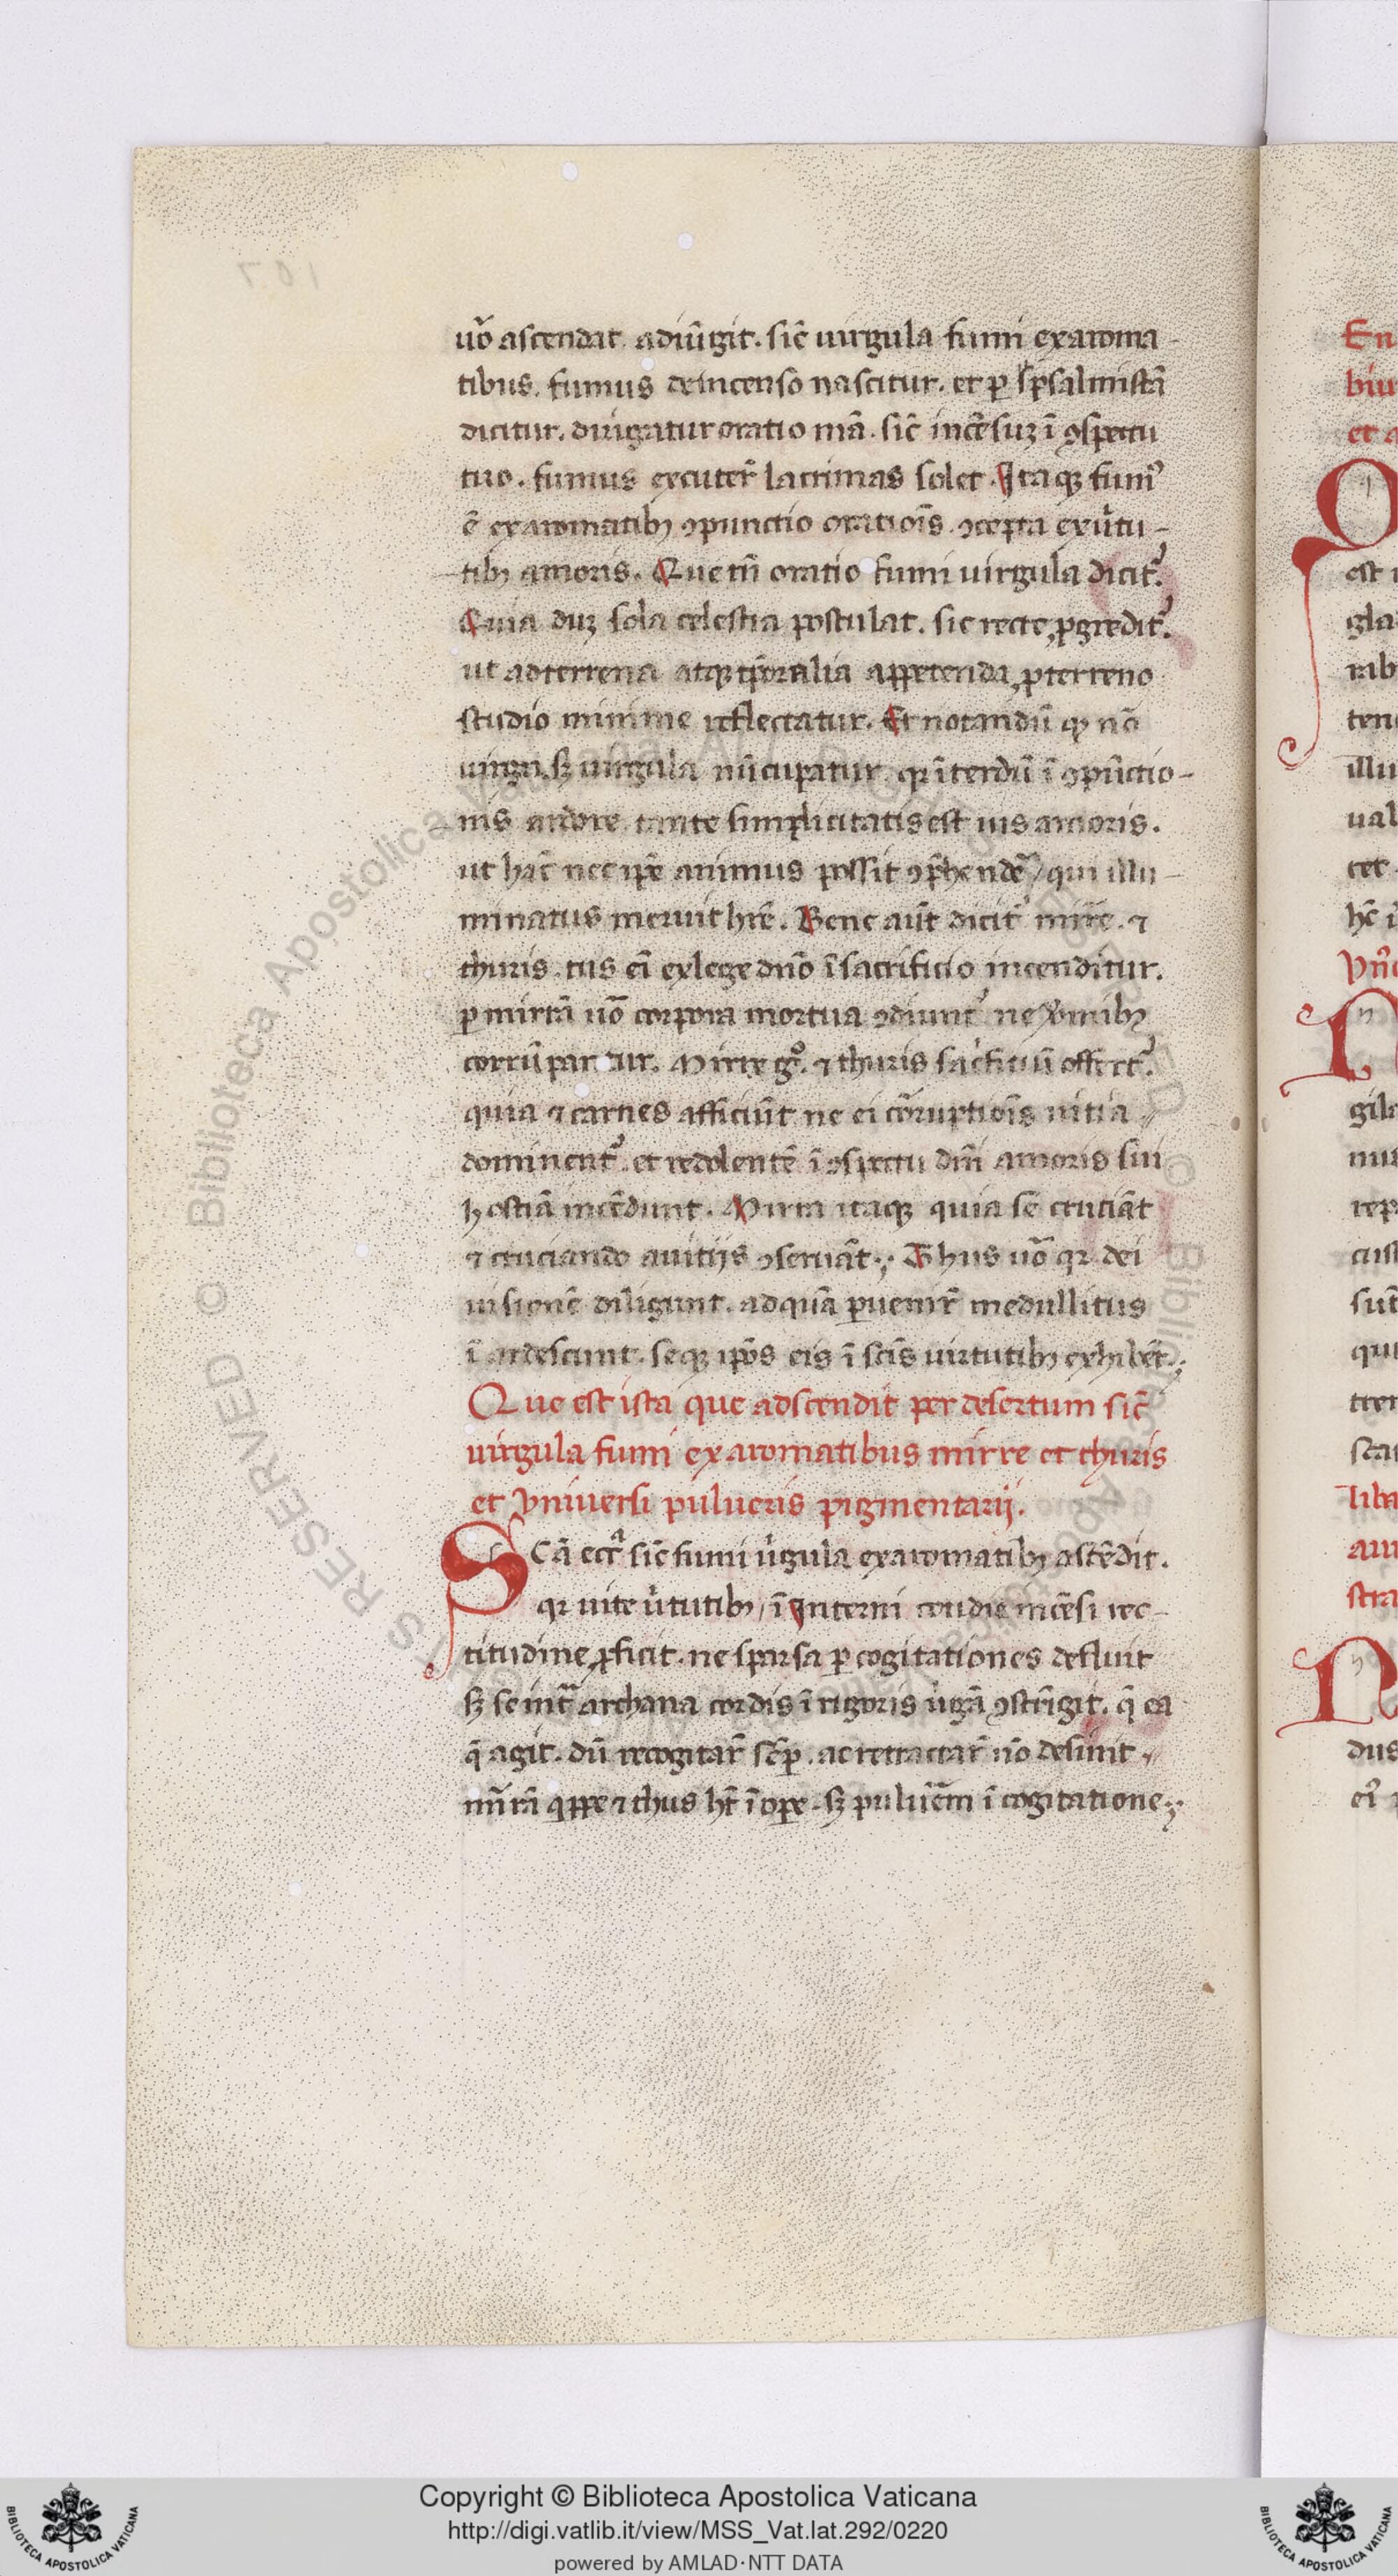 uo᷑ ascendat adiūgit. sic̄ uirgula fumi exaroma-
tibus. fumus deincenso nascitur. et ꝑ psalmistā
dicitur. dirigatur oratio mā. sic̄ incēsuꝫ ī ꝯspectu
tuo. fumus excuter̄ lacrimas solet. Itaqꝫ fumꝰ
ē exaromatibꝫ ꝯpunctio oratiōis ꝯcepta exuͥtu-
tibꝫ amoris. Que tn̄ oratio fumi uirgula dicit᷑.
Quia duꝫ sola celestia postulat. sic recte ꝓgredit᷑.
ut adterrena atqꝫ tp̄oralia appetenda, ꝓ terreno
studio minime reflectatur. Et notandū ꝙ nō
uirga. sꝫ uirgula nūcupatur. qꝛ īterdū ī ꝯpūctio-
nis ardore tante simplicitatis est uis amoris.
ut hāc nec ip̄e animus possit ꝯp̄hendē qui illu-
minatus meruit hr̄e. Bene aūt dicit᷑ mirre. ⁊
thuris. tus ēi exlege dn̄o ī sacrificio incenditur.
ꝑ mirrā uō corpora mortua ꝯdiunt᷑ ne uͦmibꝫ
corrūpantur. Mirre gͦ. ⁊ thuris sac̄ficiū offert᷑.
quia ⁊ carnes afficiūt ne ei cōruptiōis uitia
dominent᷑. et redolentē ī ꝯspectu dn̄i amoris sui
hostiā incēdunt. Mirra itaqꝫ quia se cruciāt
⁊ cruciando auitijs ꝯseruāt; Thus uō qꝛ dei
uisionē diligunt. adquā ꝑuenir̄ medullitus
īardescunt. seqꝫ ipōs eis ī sc̄is uirtutibꝫ exhibēt;
Que est ista que adscendit per desertum sic̄
uirgula fumi exaromatibus mirre et thuris
et vniuersi pulueris pigmentarij.
SCā eccͣ sic̄ fumi uͥgula exaromatibꝫ ascēdit.
qꝛ uite uͥtutibꝫ, ī Interni cotidie incēsi rec-
titudine ꝓficit. ne sparsa ꝑ cogitationes defluit
sꝫ se int̄ archana cordis ī rigoris uͥgā ꝯstrīgit. q̄ ea
q̄ agit. dū recogitar̄ sēp. ac retractar̄ nō desinit
mirrā qͥppe ⁊ thus ht̄ ī ope. sꝫ puluēm ī cogitatione;
Copyright © Biblioteca Apostolica Vaticana
http://digi.vatlib.it/view/MSS_Vat.lat.292/0220
powered by AMLAD·NTT DATA